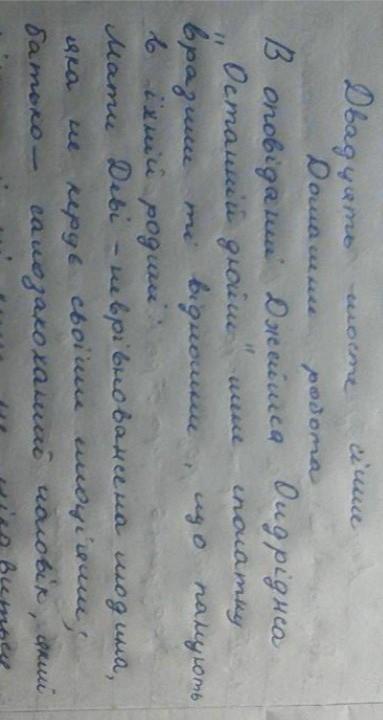 Двадцять шосте січня
Домашня робота
В оповіданні Джеймса Олдріджа
"Останній дюйм" мене спочатку
вразили ті відносини, що панують
в їхній родині.
Мати Деві - неврівноважена людина,
яка не керує своїми емоціями,
батько - самозакоханий чоловік, який
не цікавиться